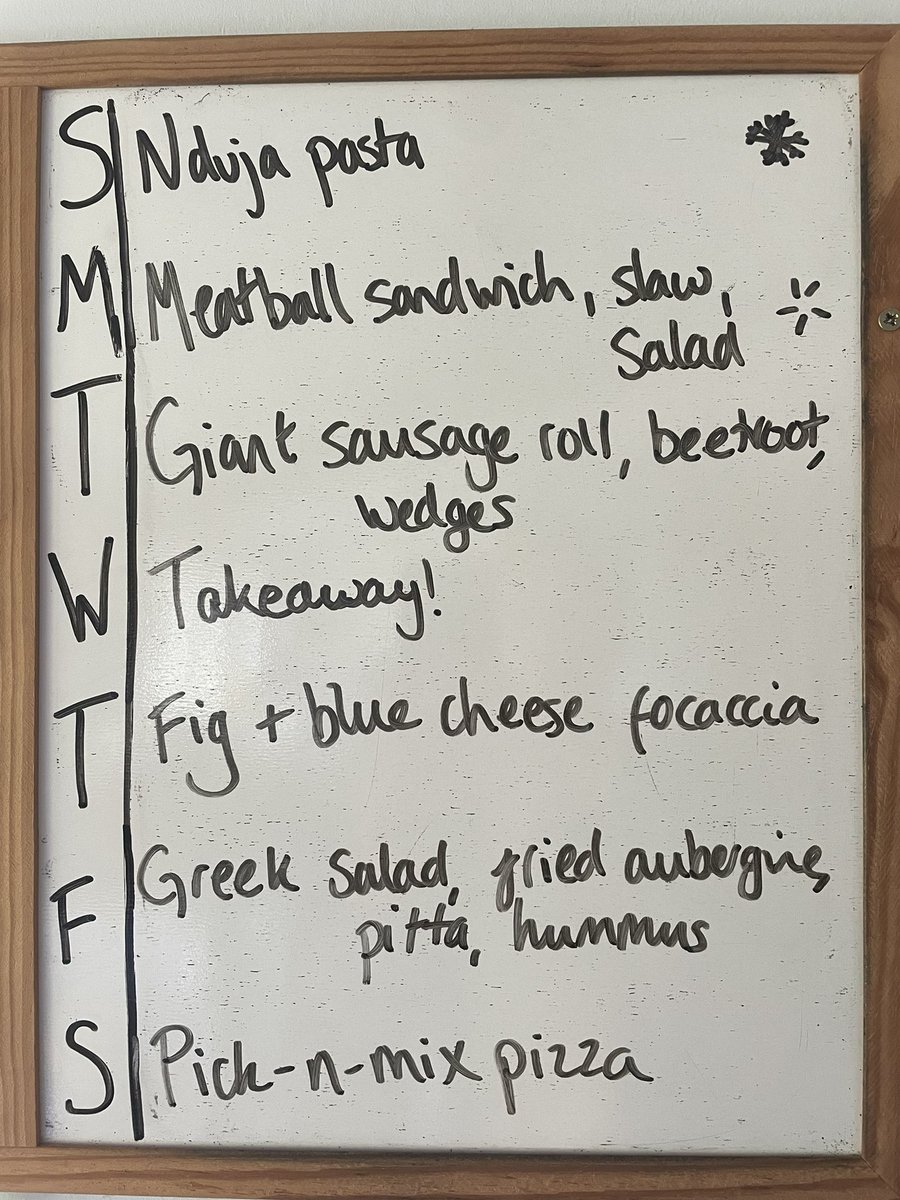 S Nduja pasta
M Meatball sandwich, slaw,
salad
T Giant sausage roll, beetroot,
wedges
W Takeaway!
T Fig + blue cheese focaccia
F Greek salad, fried aubergine,
pitta, hummus
S Pick-n-mix pizza